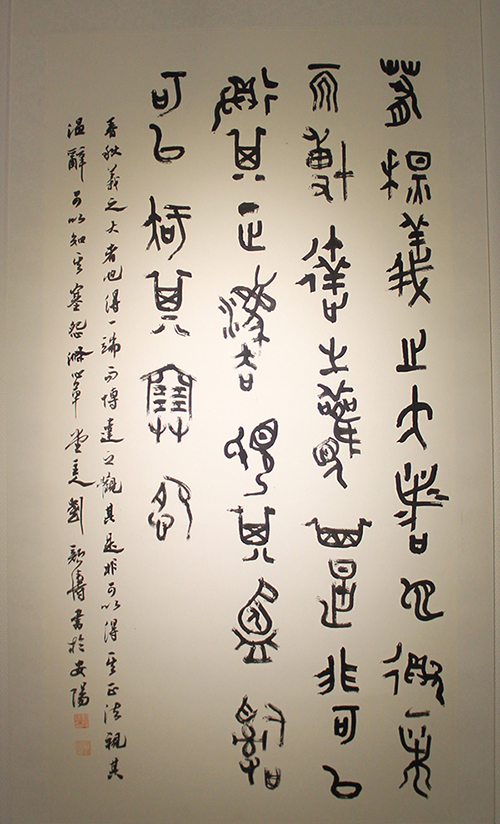 春秋義之大者也得一耑
而博達之觀其是非可以
得其正灋視其昷辭
可以知其塞怨
春秋義之大者也得一端而博達之觀其是非可以得其正法視其
温辭可以知其塞怨滌心草堂主人劉博書於安陽